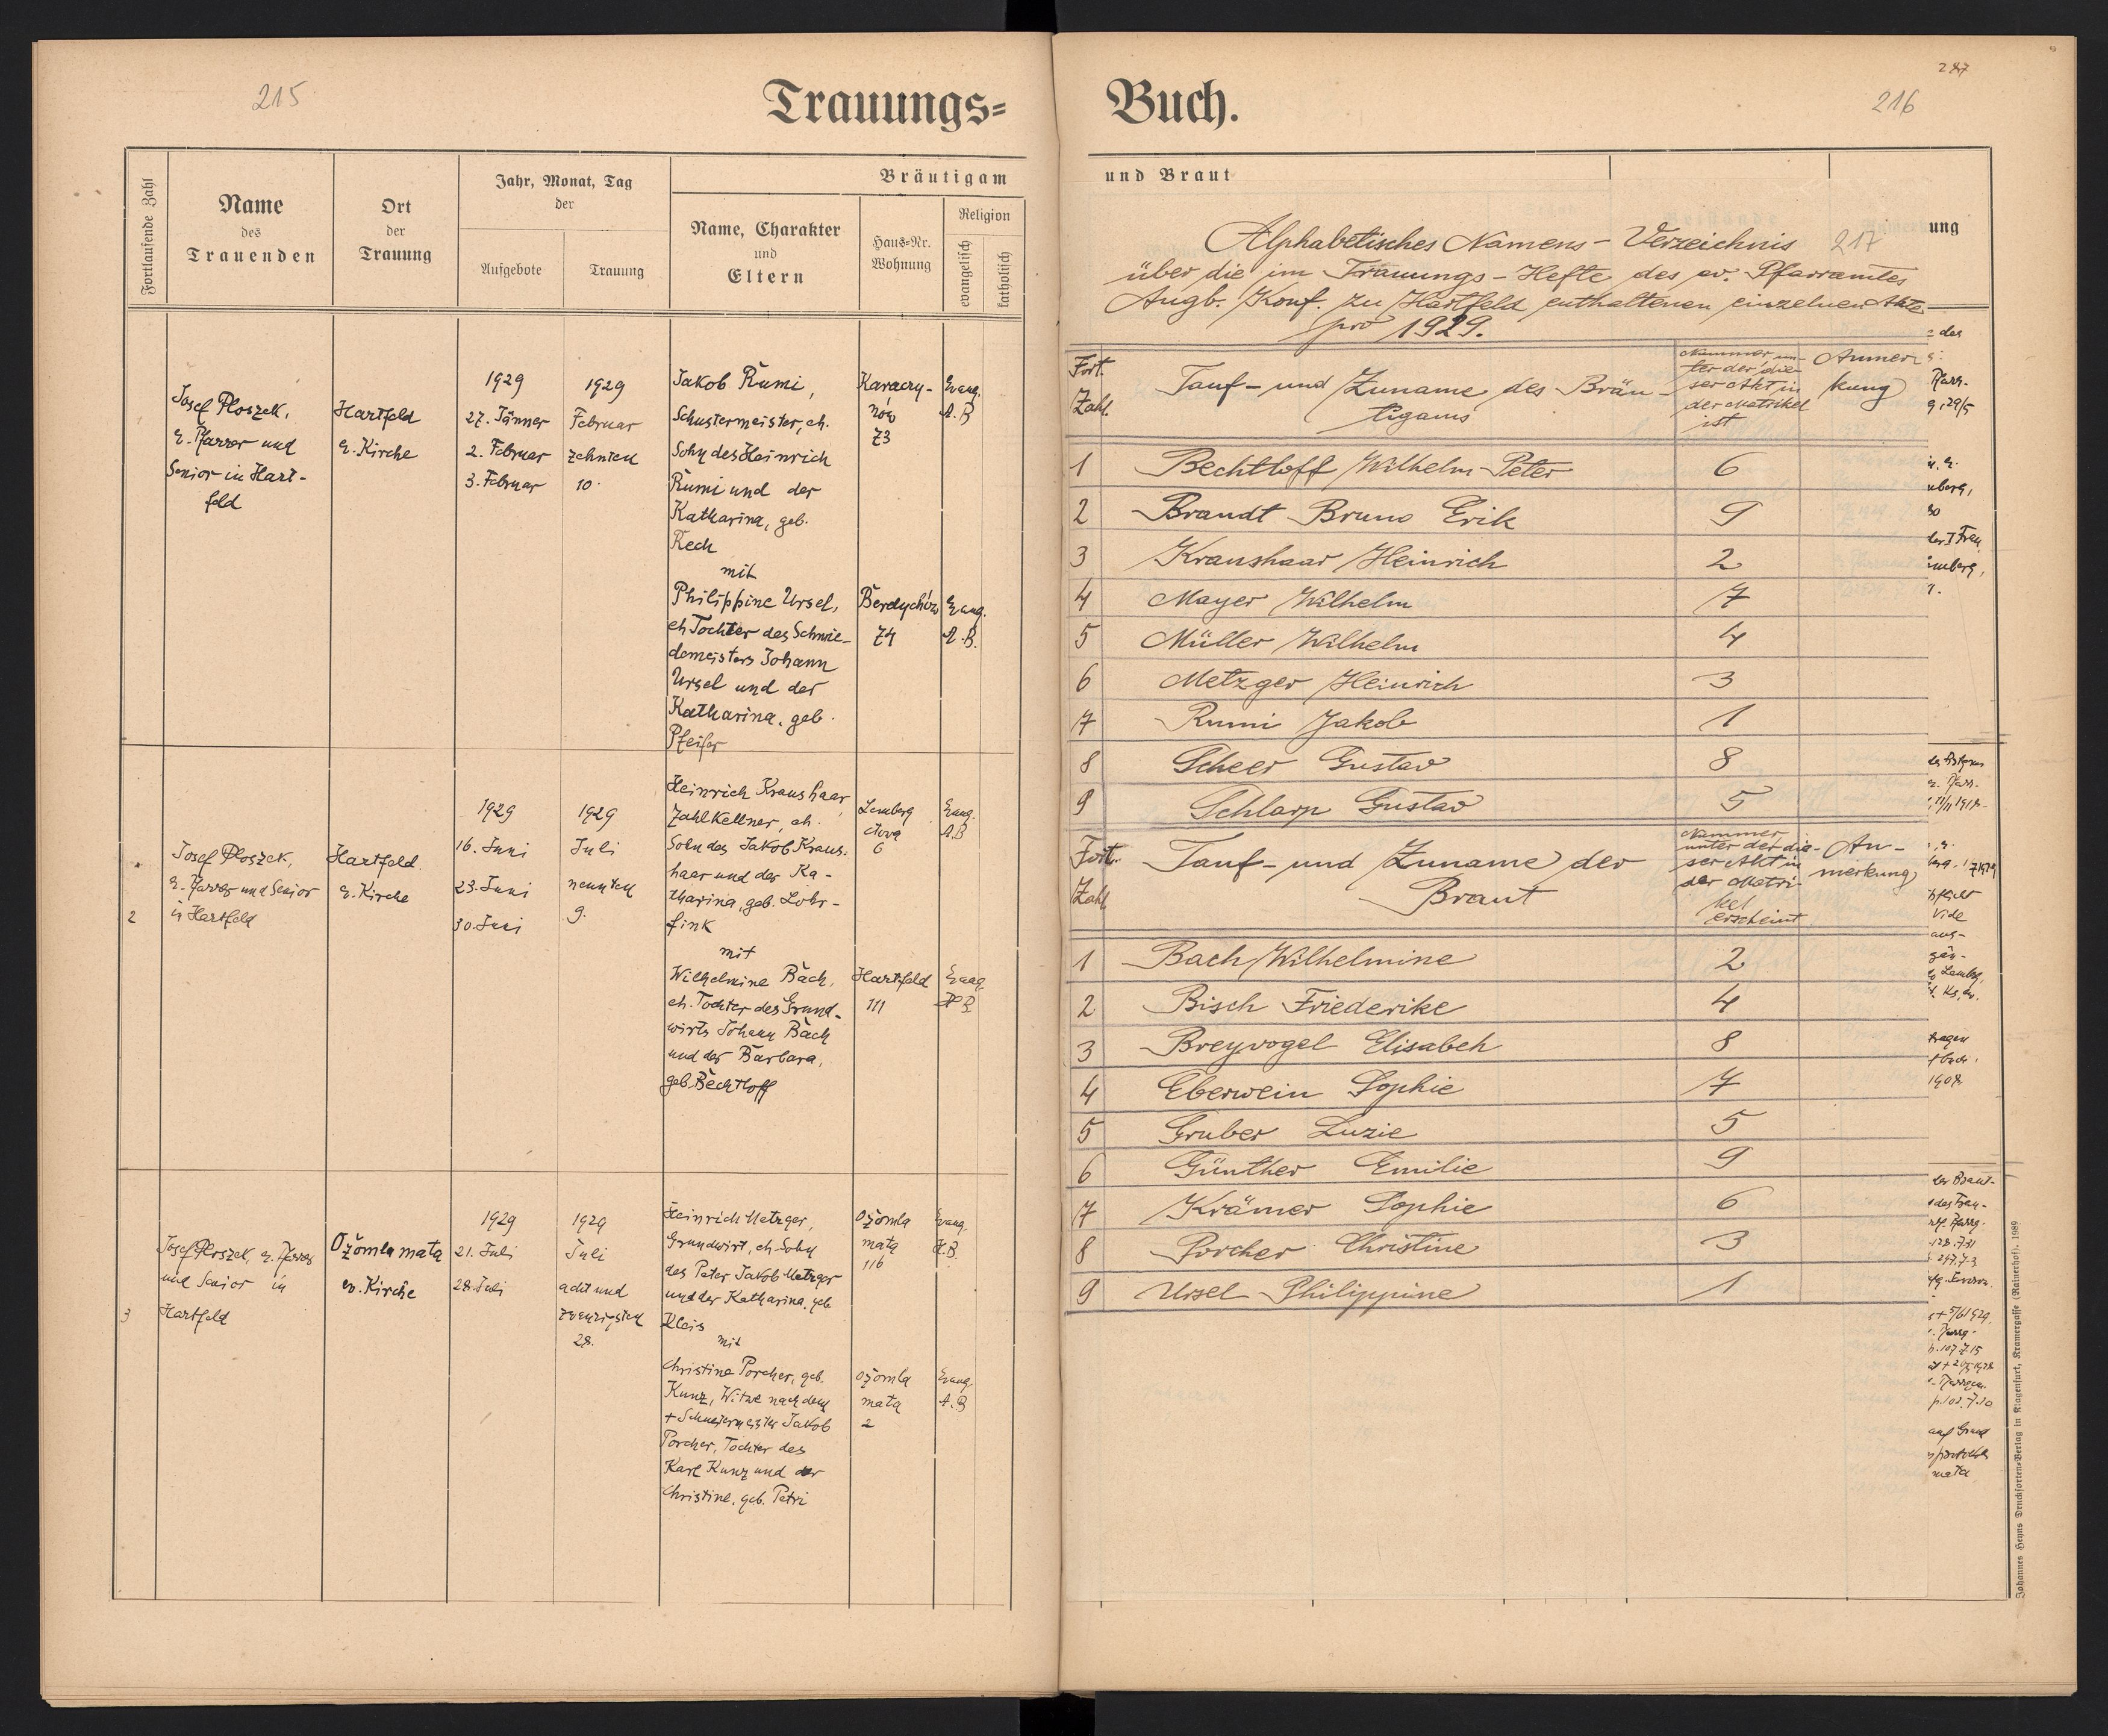 215
Trauungs=
Fortlaufende Zahl
Name
des
Trauenden
Ort
der
Trauung
Jahr, Monat, Tag
der
Aufgebote
Trauung
Bräutigam
Name, Charakter
und
Eltern
Haus=Nr.
Wohnung
Religion
evangelisch
katholisch
Josef Ploszek,
e. Pfarrer und
Senior in Hart-
feld
Hartfeld
e. Kirche
1929
27. Jänner
2. Februar
3. Februar
1929
Februar
zehnten
10.
Jakob Rumi,
Schustermeister, eh.
Sohn des Heinrich
Rumi und der
Katharina, geb.
Rech
mit
Philippine Ursel,
eh Tochter des Schmie-
demeisters Johann
Ursel und der
Katharina, geb.
Pfeifer
Karaczy-
nów
73
Berdychów
74
Evang.
A. B
Evang.
A. B.
2
Josef Ploszek,
e. Pfarrer und Senior
in Hartfeld
Hartfeld
e. Kirche
1929
16. Juni
23. Juni
30. Juni
1929
Juli
neunten
9.
Heinrich Kraushaar,
Zahlkellner, eh.
Sohn des Jakob Kraus-
haar und der Ka-
tharina, geb. Lohr-
fink
mit
Wilhelmine Bach,
eh. Tochter des Grund-
wirts Johann Bach
und der Barbara,
geb. Bechtloff
Lemberg
6
Hartfeld
111
Evang.
A.B
Evang.
3
Josef Ploszek, e. Pfarrer
und Senior in
Hartfeld
Ożomla mała
ev. Kirche
1929
21. Juli
28. Juli
1929
Juli
acht und
zwanzigsten
28.
Heinrich Metzger,
Grundwirt, eh. Sohn
des Peter Jakob Metzger
und der Katharina, geb
Kleis
mit
Christine Porcher, geb.
Kunz, Witwe nach dem
+ Schneidermeister Jakob
Porcher, Tochter des
Karl Kunz und der
Christine, geb. Petri
Ożomla
mała
116
Ożomla
mała
2
Evang.
A.B.
Evang.
A.B
Buch.
247
216
und Braut
ung
Alphabetisches Namens-Verzeichnis 217
über die im Trauungs-Hefte des ev. Pfarramtes
Augb. Konf. zu Hartfeld enthaltenen einzelnen Akte
pro 1929.
Fort.
Zahl.
Tauf- und Zuname des Bräu-
tigams
Nummer, un-
ter der die-
ser Akt in
der Matrikel
ist
Anmer
kung
1 Bechtloff Wilhelm-Peter 6
2 Brandt Bruno Erik 9
3 Kraushaar Heinrich 2
4 Mayer Wilhelm 7
5 Müller Wilhelm 4
6 Metzger Heinrich 3
7 Rumi Jakob 1
8 Scheer Gustav 8
9 Schlarp Gustav 5
Fort.
Zahl
Tauf- und Zuname der
Braut
Nummer,
unter der die-
ser Akt in
der Matri-
kel
erscheint
An-
merkung
1 Bach Wilhelmine 2
2 Bisch Friederike 4
3 Breyvogel Elisabeh 8
4 Eberwein Sophie 7
5 Gruber Luzie 5
6 Günther Emilie 9
7 Krämer Sophie 6
8 Porcher Christine 3
9 Ursel Philippine 1
Johannes Heyns Drucksorten=Verlag in Klagenfurt, Kramergasse (Rainerhof). 1989